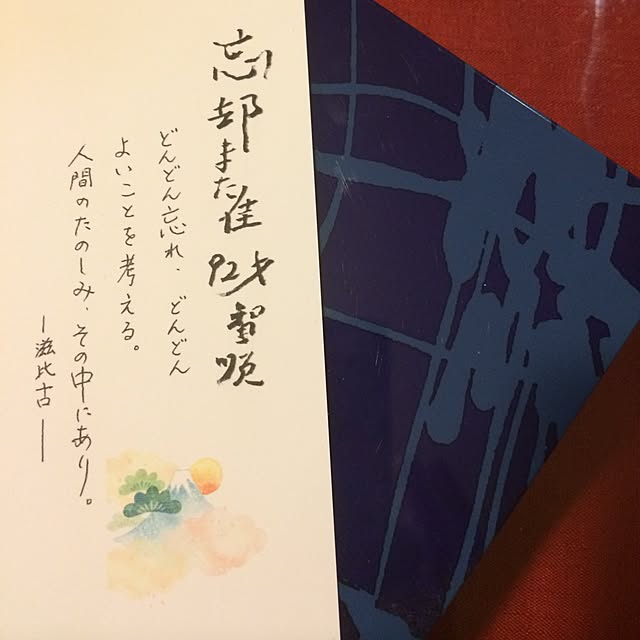 忘却また佳 92才 智晩
どんどん忘れ、どんどん
よいことを考える。
人間のたのしみ、その中にあり。
ー滋比古ー